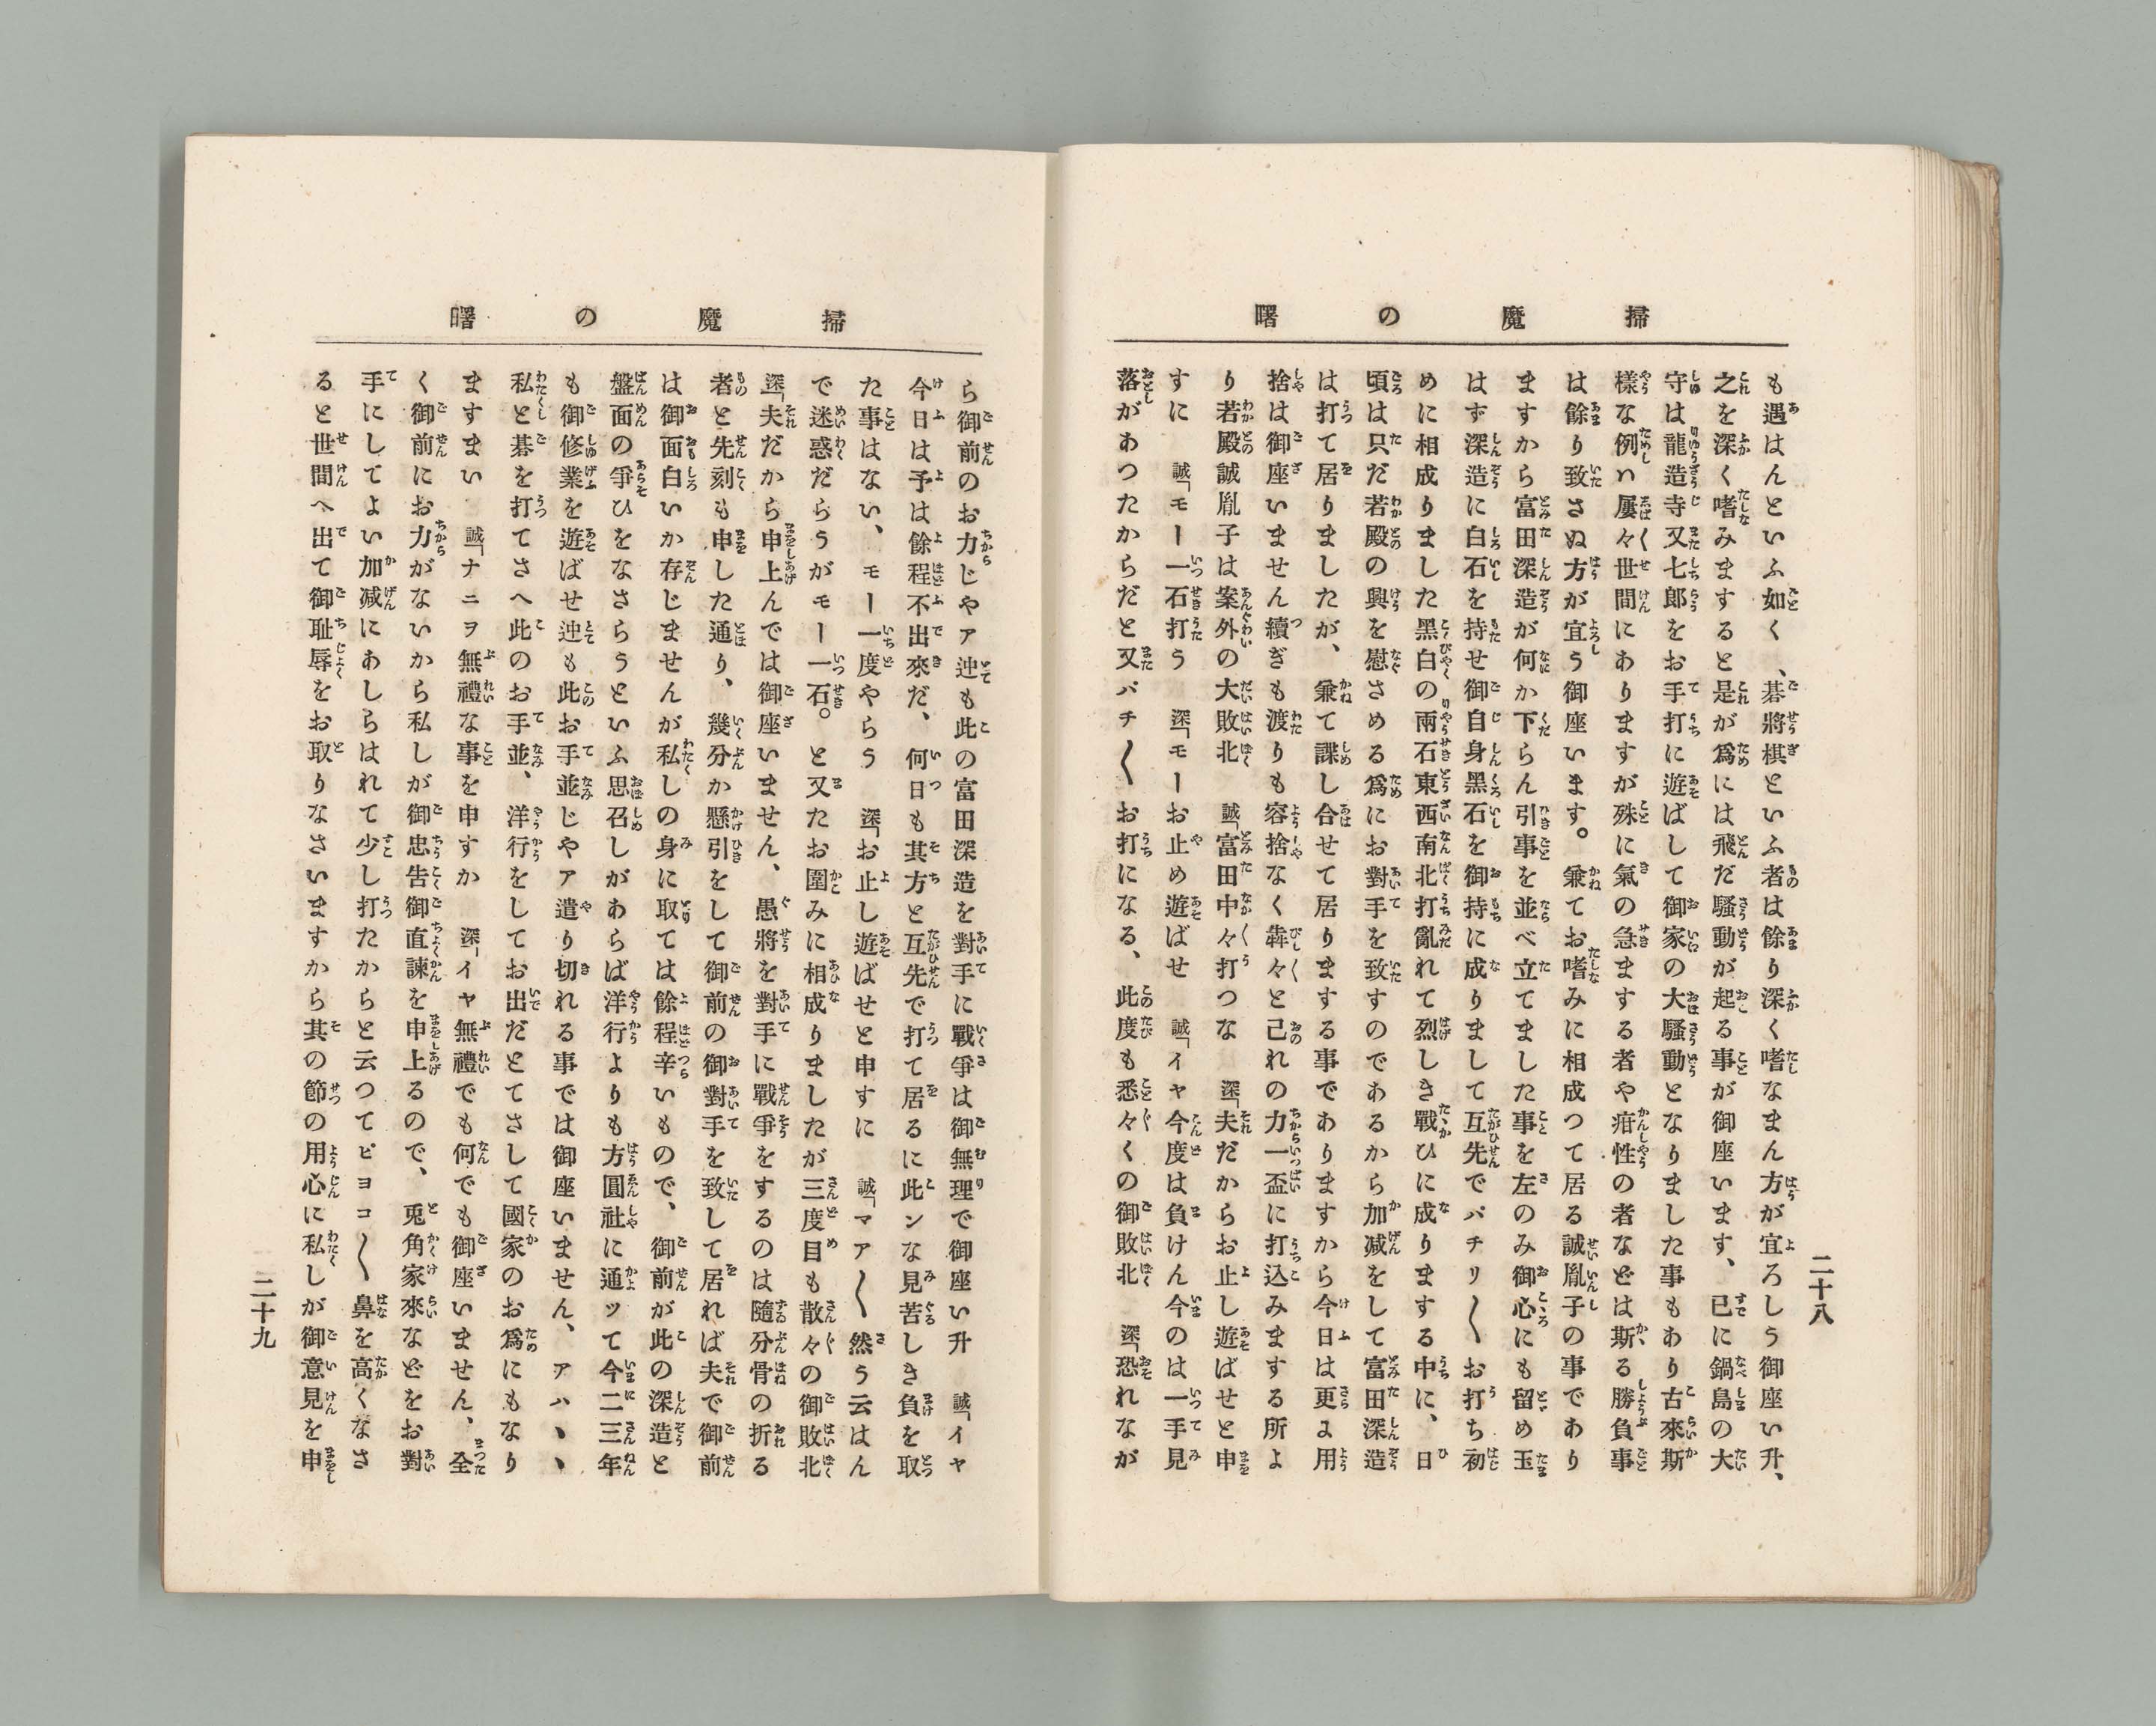 掃魔の曙
も遇はんといふ如く、碁將棋といふ者は餘り深く嗜なまん方が宜ろしう御座い升、
之を深く嗜みますると是が爲には飛だ騷動が起る事が御座います、已に鍋島の大
守は龍造寺又七郎をお手打に遊ばして御家の大騷動となりました事もあり古來斯
樣な例い屢々世間にありますが殊に氣の急まする者や疳性の者などは斯る勝負事
は餘り致さぬ方が宜う御座います。兼てお嗜みに相成つて居る誠胤子の事であり
ますから富田深造が何か下らん引事を並べ立てました事を左のみ御心にも留め玉
はず深造に白石を持せ御自身黑石を御持に成りまして互先でパチリ〱お打ち初
めに相成りました黑白の兩石東西南北打亂れて烈しき戰ひに成りまする中に、日
頃は只だ若殿の興を慰さめる爲にお對手を致すのであるから加减をして富田深造
は打て居りましたが、兼て諜し合せて居りまする事でありますから今日は更ま用
捨は御座いません續ぎも渡りも容捨なく犇々と己れの力一盃に打込みまする所よ
り若殿誠胤子は案外の大敗北 誠「富田中々打つな 深「夫だからお止し遊ばせと申
すに 誠「モー一石打う 深「モーお止め遊ばせ 誠「イヤ今度は負けん今のは一手見
落があつたからだと又パチ〱お打になる、此度も悉々くの御敗北 深「恐れなが
二十八
掃魔の曙
ら御前のお力じやア迚も此の富田深造を對手に戰爭は御無理で御座い升 誠「イヤ
今日は予は餘程不出來だ、何日も其方と互先で打て居るに此ンな見苦しき負を取
た事はない、モー一度やらう 深「お止し遊ばせと申すに 誠「マア〱然う云はん
で迷惑だらうがモー一石。と又たお圍みに相成りましたが三度目も散々の御敗北
深「夫だから申上んでは御座いません、愚將を對手に戰爭をするのは隨分骨の折る
者と先刻も申した通り、幾分か懸引をして御前の御對手を致して居れば夫で御前
は御面白いか存じませんが私しの身に取ては餘程辛いもので、御前が此の深造と
盤面の爭ひをなさらうといふ思召しがあらば洋行よりも方圓社に通ッて今二三年
も御修業を遊ばせ迚も此お手並じやア遣り切れる事では御座いません、アハヽヽ
私と碁を打てさへ此のお手並、洋行をしてお出だとてさして國家のお爲にもなり
ますまい 誠「ナニヲ無禮な事を申すか 深「イヤ無禮でも何でも御座いません、全
く御前にお力がないから私しが御忠告御直諫を申上るので、兎角家來などをお對
手にしてよい加减にあしらはれて少し打たからと云つてピヨコ〱鼻を高くなさ
ると世間へ出て御耻辱をお取りなさいますから其の節の用心に私しが御意見を申
二十九